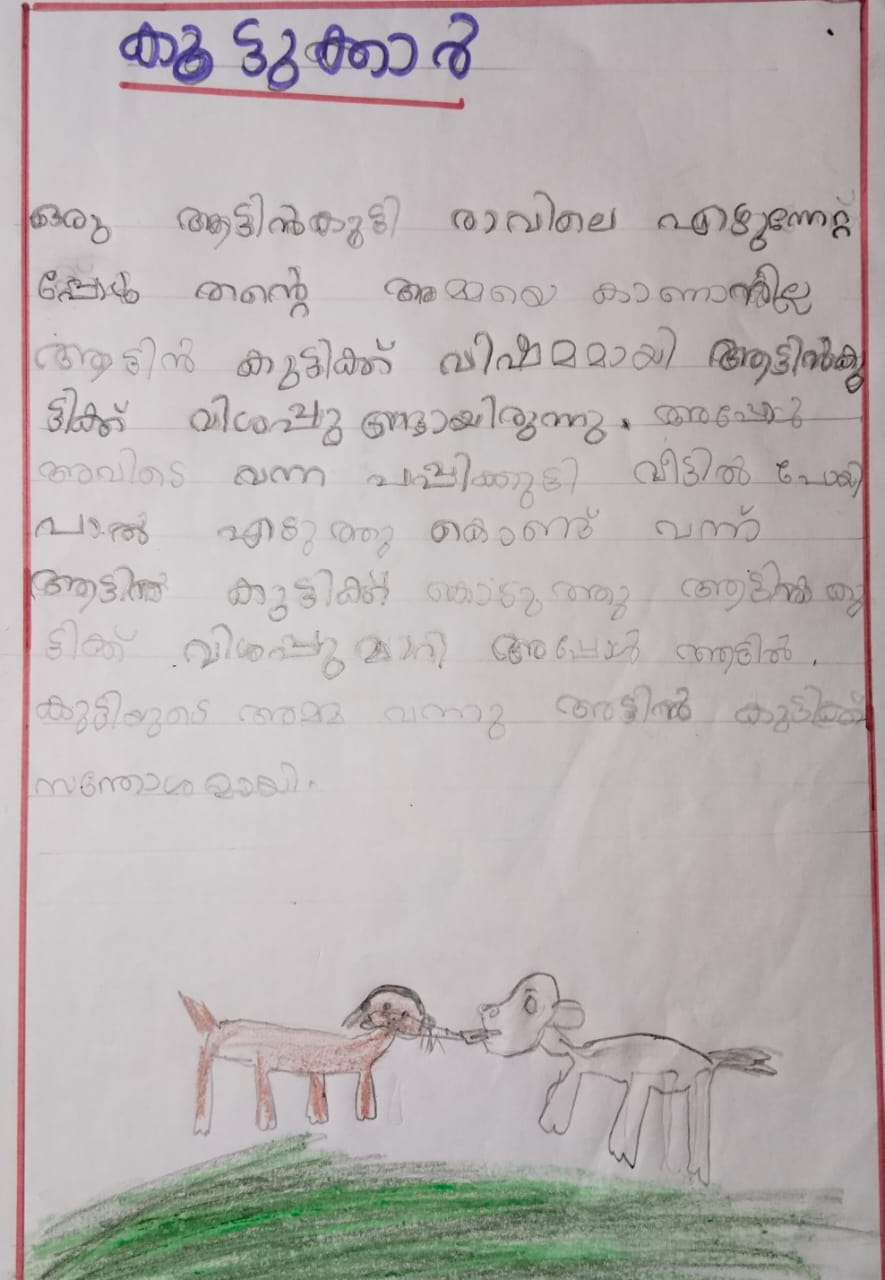 കൂട്ടുക്കാർ
ഒരു ആട്ടിൻകുട്ടി രാവിലെ എഴുന്നേറ്റ
പ്പോൾ തന്റെ അമ്മയെ കാണാനില്ല
ആട്ടിൻ കുട്ടിക്ക് വിഷമമായി ആട്ടിൻകു
ട്ടിക്ക് വിശപ്പു ണ്ടായിരുന്നു. അപ്പോ
അവിടെ വന്ന പശുക്കുട്ടി വീട്ടിൽ പോയി
പാൽ എടുത്തു കൊണ്ട് വന്ന്
ആട്ടിൻ കുട്ടിക്ക് കൊടുത്തു ആട്ടിൻകു
ട്ടിക്ക് വിശപ്പു മാറി അപ്പോൾ ആട്ടിൽ.
കുട്ടിയുടെ അമ്മ വന്നു അട്ടിൻ കുട്ടിക്ക്
സന്തോശമായി.